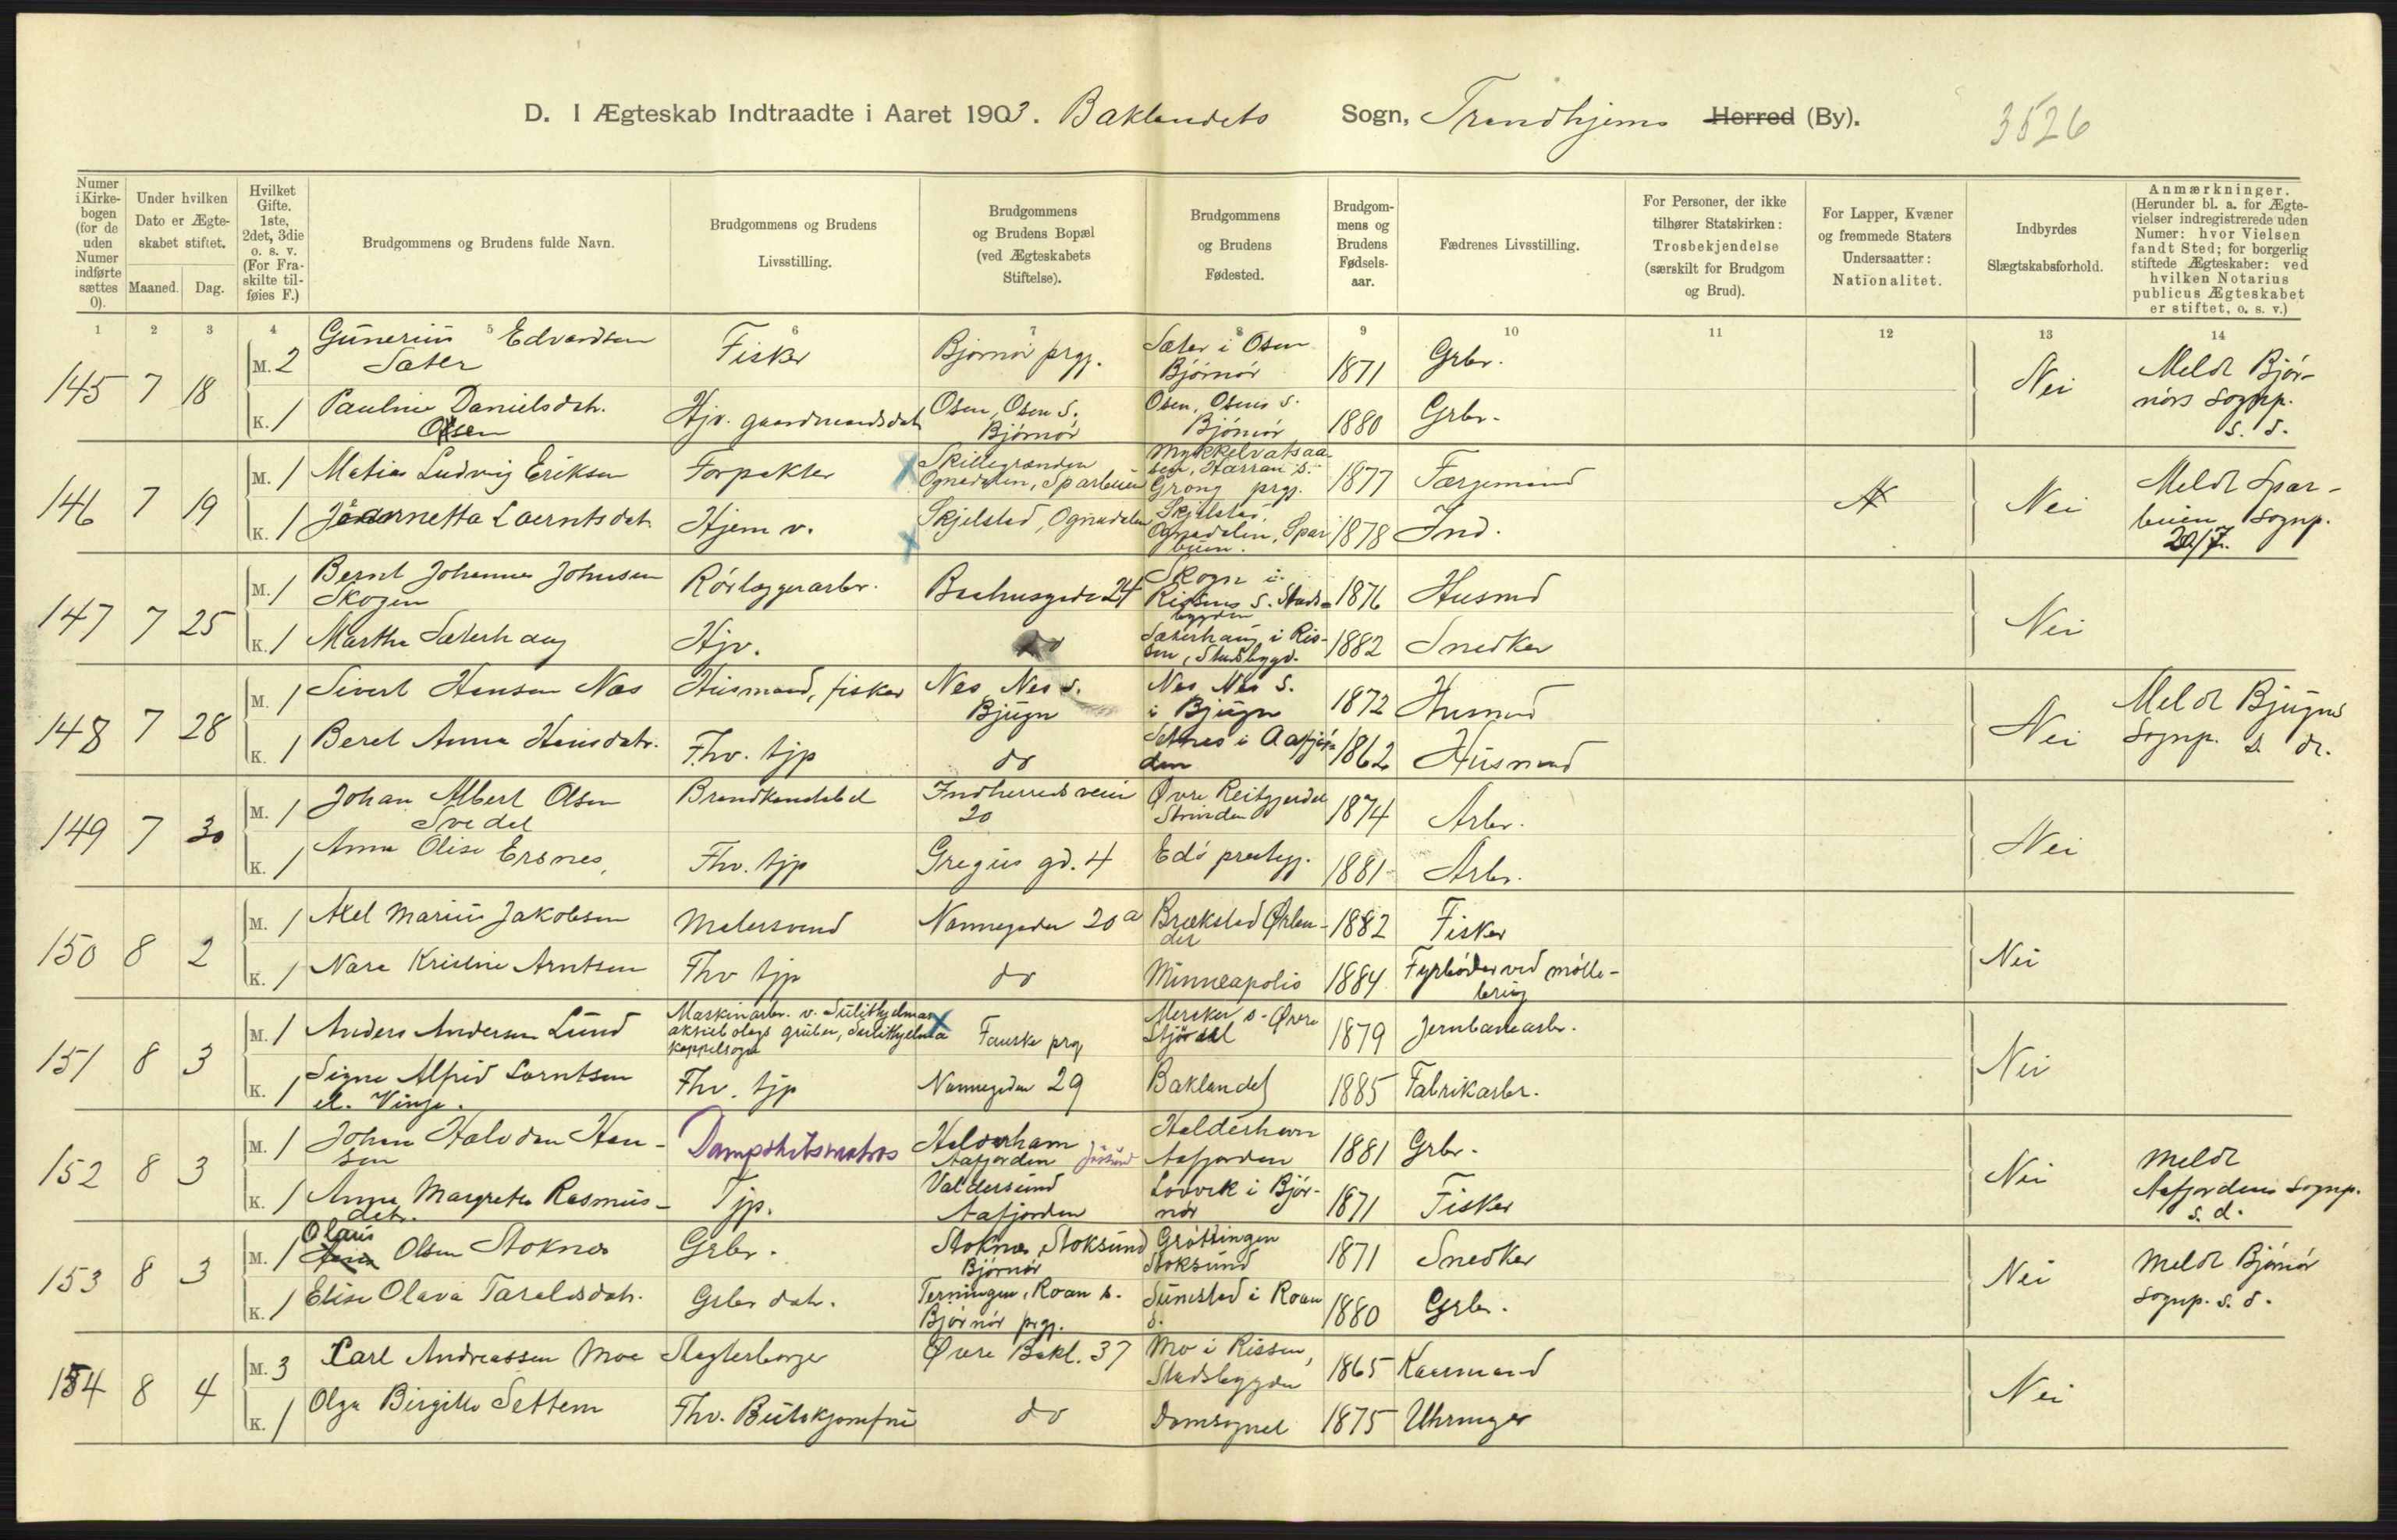 D. I Ægteskab Indtraadte i Aaret 1903. Baklandets Sogn, Trondhjems Herred (By). 3526
Numer i Kirkebogen (for de uden Numer indførte sættes 0).
Under hvilken Dato er Ægteskabet stiftet.
Maaned. Dag.
Hvilket Gifte. 1ste, 2det, 3die o. s. v. (For Fraskilte tilføies F.)
Brudgommens og Brudens fulde Navn.
Brudgommens og Brudens Livsstilling.
Brudgommens og Brudens Bopæl (ved Ægteskabets Stiftelse).
Brudgommens og Brudens Fødested.
Brudgommens og Brudens Fødselsaar.
Fædrenes Livsstilling.
For Personer, der ikke tilhører Statskirken: Trosbekjendelse (særskilt for Brudgom og Brud).
For Lapper, Kvæner og fremmede Staters Undersaatter: Nationalitet.
Indbyrdes Slægtskabsforhold.
Anmærkninger. (Herunder bl. a. for Ægtevielser indregistrerede uden Numer: hvor Vielsen fandt Sted; for borgerlig stiftede Ægteskaber: ved hvilken Notarius publicus Ægteskabet er stiftet, o. s. v.)
1 2 3 4 5 6 7 8 9 10 11 12 13 14
145 7 18 M. 2 Gunerius Edvardsen Sæter Fisker Bjørnør prgj. Sæter i Osen Bjørnør 1871 Grbr. Nei Meldt Bjørnørs sognp. s. d.
K. 1 Pauline Danielsdtr. Osen Hjv. gaardmandsdat Osen, Osen S. Bjørnør Osen, Osens S. Bjørnør 1880 Grbr.
146 7 19 M. 1 Matias Ludvig Eriksen Forpakter Skillegranden Ognedalen, Sparbuen Mykkelvatsaasen, Harran s. Grong prgj. 1877 Færgemand Nei Meldt Sparbuen Sognp.
K. 1 Laerntsdat. Hjem v. Skjelstad, Ognadalen Skjelstad, Ognadalen, Sparbuen. 1878 Ind.
147 7 25 M. 1 Bernt Johannes Johnsen Skogen Rörlæggerarbr. Baahusgade 24 Skogn i Rissens S. Stadsbygden 1876 Husmd Nei
K. 1 Martha Sæterhaug Hjv. do Sæterhaug i Rissen, Stadsbygd. 1882 Snedker
148 7 28 M. 1 Sivert Hansen Næs Husmand, fisker Nes, Nes S. Bjugn Nes Nes S. i Bjugn 1872 Husmd Nei Meldt Bjugns Sognp. s. d.
K. 1 Beret Anna Hansdatr. Fhv. tjp do i Aafjorden 1862 Husmd
149 7 30 M. 1 Johan Albert Olsen Svedel Brandkonstabel Indherredsveien 20 Øvre Reitgjerdet Strinden 1874 Arbr. Nei
K. 1 Anna Olise Ersnes, Fhv. tjp Gregus gd. 4 Edö prestegj. 1881 Arbr.
150 8 2 M. 1 Axel Marius Jakobsen Malersvend Nonnegaden 20 a Brækstad Ørlandet 1882 Fisker Nei
K. 1 Nara Kristine Arntsen Fhv tjp do Minneapolis 1884 Fyrböder ved möllebrug
151 8 3 M. 1 Anders Andersen Lund Maskinarbr. v. Sulithjelmas aktiebolags gruber, Sulithjelma kappelsogn Fauske prgj Meraker s. Øvre Stjördal 1879 Jernbanearbr. Nei
K. 1 Signe Alfrid Lorntsen el. Vinje. Fhv. tjp Nonnegaden 29 Baklandet 1885 Fabrikarbr.
152 8 3 M. 1 Johan Halvdan Hansen Dampskibsmatros Halderhavn Aafjorden Jössund Halderhavn Aafjorden 1881 Grbr. Nei Meldt Aafjordens Sognp. s. d.
K. 1 Anna Margrete Rasmusdatr. Tjp. Valdersund Aafjorden Lovvik i Bjørnør 1871 Fisker
153 8 3 M. 1 Olaus Olsen Stoknes Grbr. Stoknes, Stoksund Bjørnør Grøttingen Stoksund 1871 Snedker Nei Meldt Bjørnør Sognp. s. d.
K. 1 Elise Olava Taraldsdatr. Grbr datr. Terningen, Roan s. Bjørnør prgj. Sumstad i Roan s. 1880 Grbr.
154 8 4 M. 3 Carl Andreassen Moe Slagterborger Øvre Bakl. 37 Mo i Rissen, Stadsbygden 1865 Kaarmand Nei
K. 1 Olga Birgitte Settem Fhv. Butikjomfru do Domsognet 1875 Uhrmager